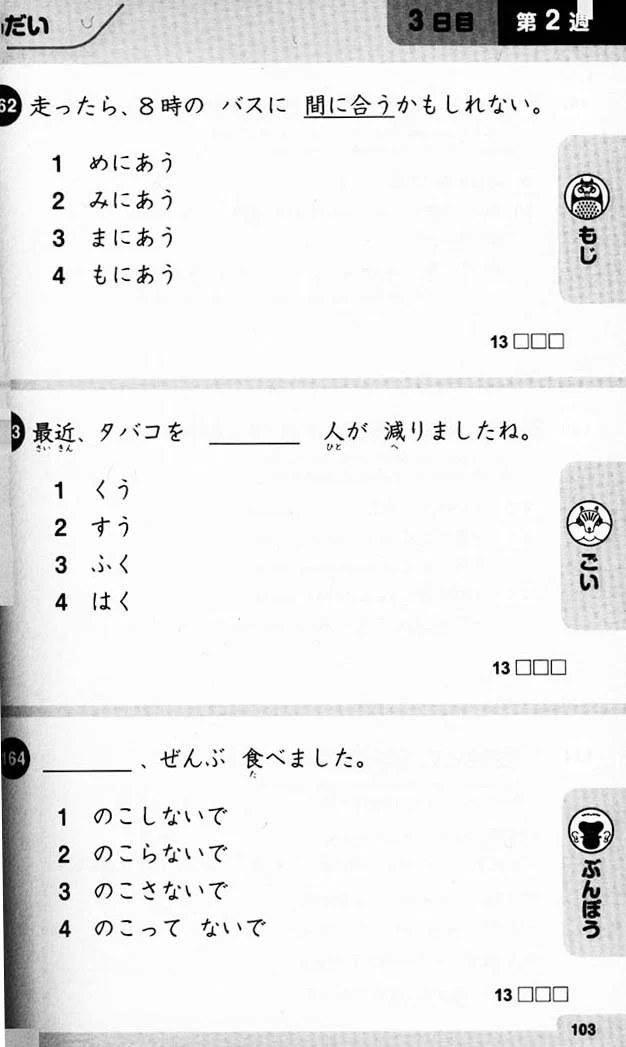 だい
3日目 第2週
62 走ったら、8時の バスに 間に合うかもしれない。
1 めにあう
2 みにあう
3 まにあう
4 もにあう
もじ
13 □□□
3 最近、タバコを ______ 人が 減りましたね。
さい きん ひと へ
1 くう
2 すう
3 ふく
4 はく
ごい
13 □□□
164 ______、ぜんぶ 食べました。
た
1 のこしないで
2 のこらないで
3 のこさないで
4 のこって ないで
ぶんぽう
13 □□□
103